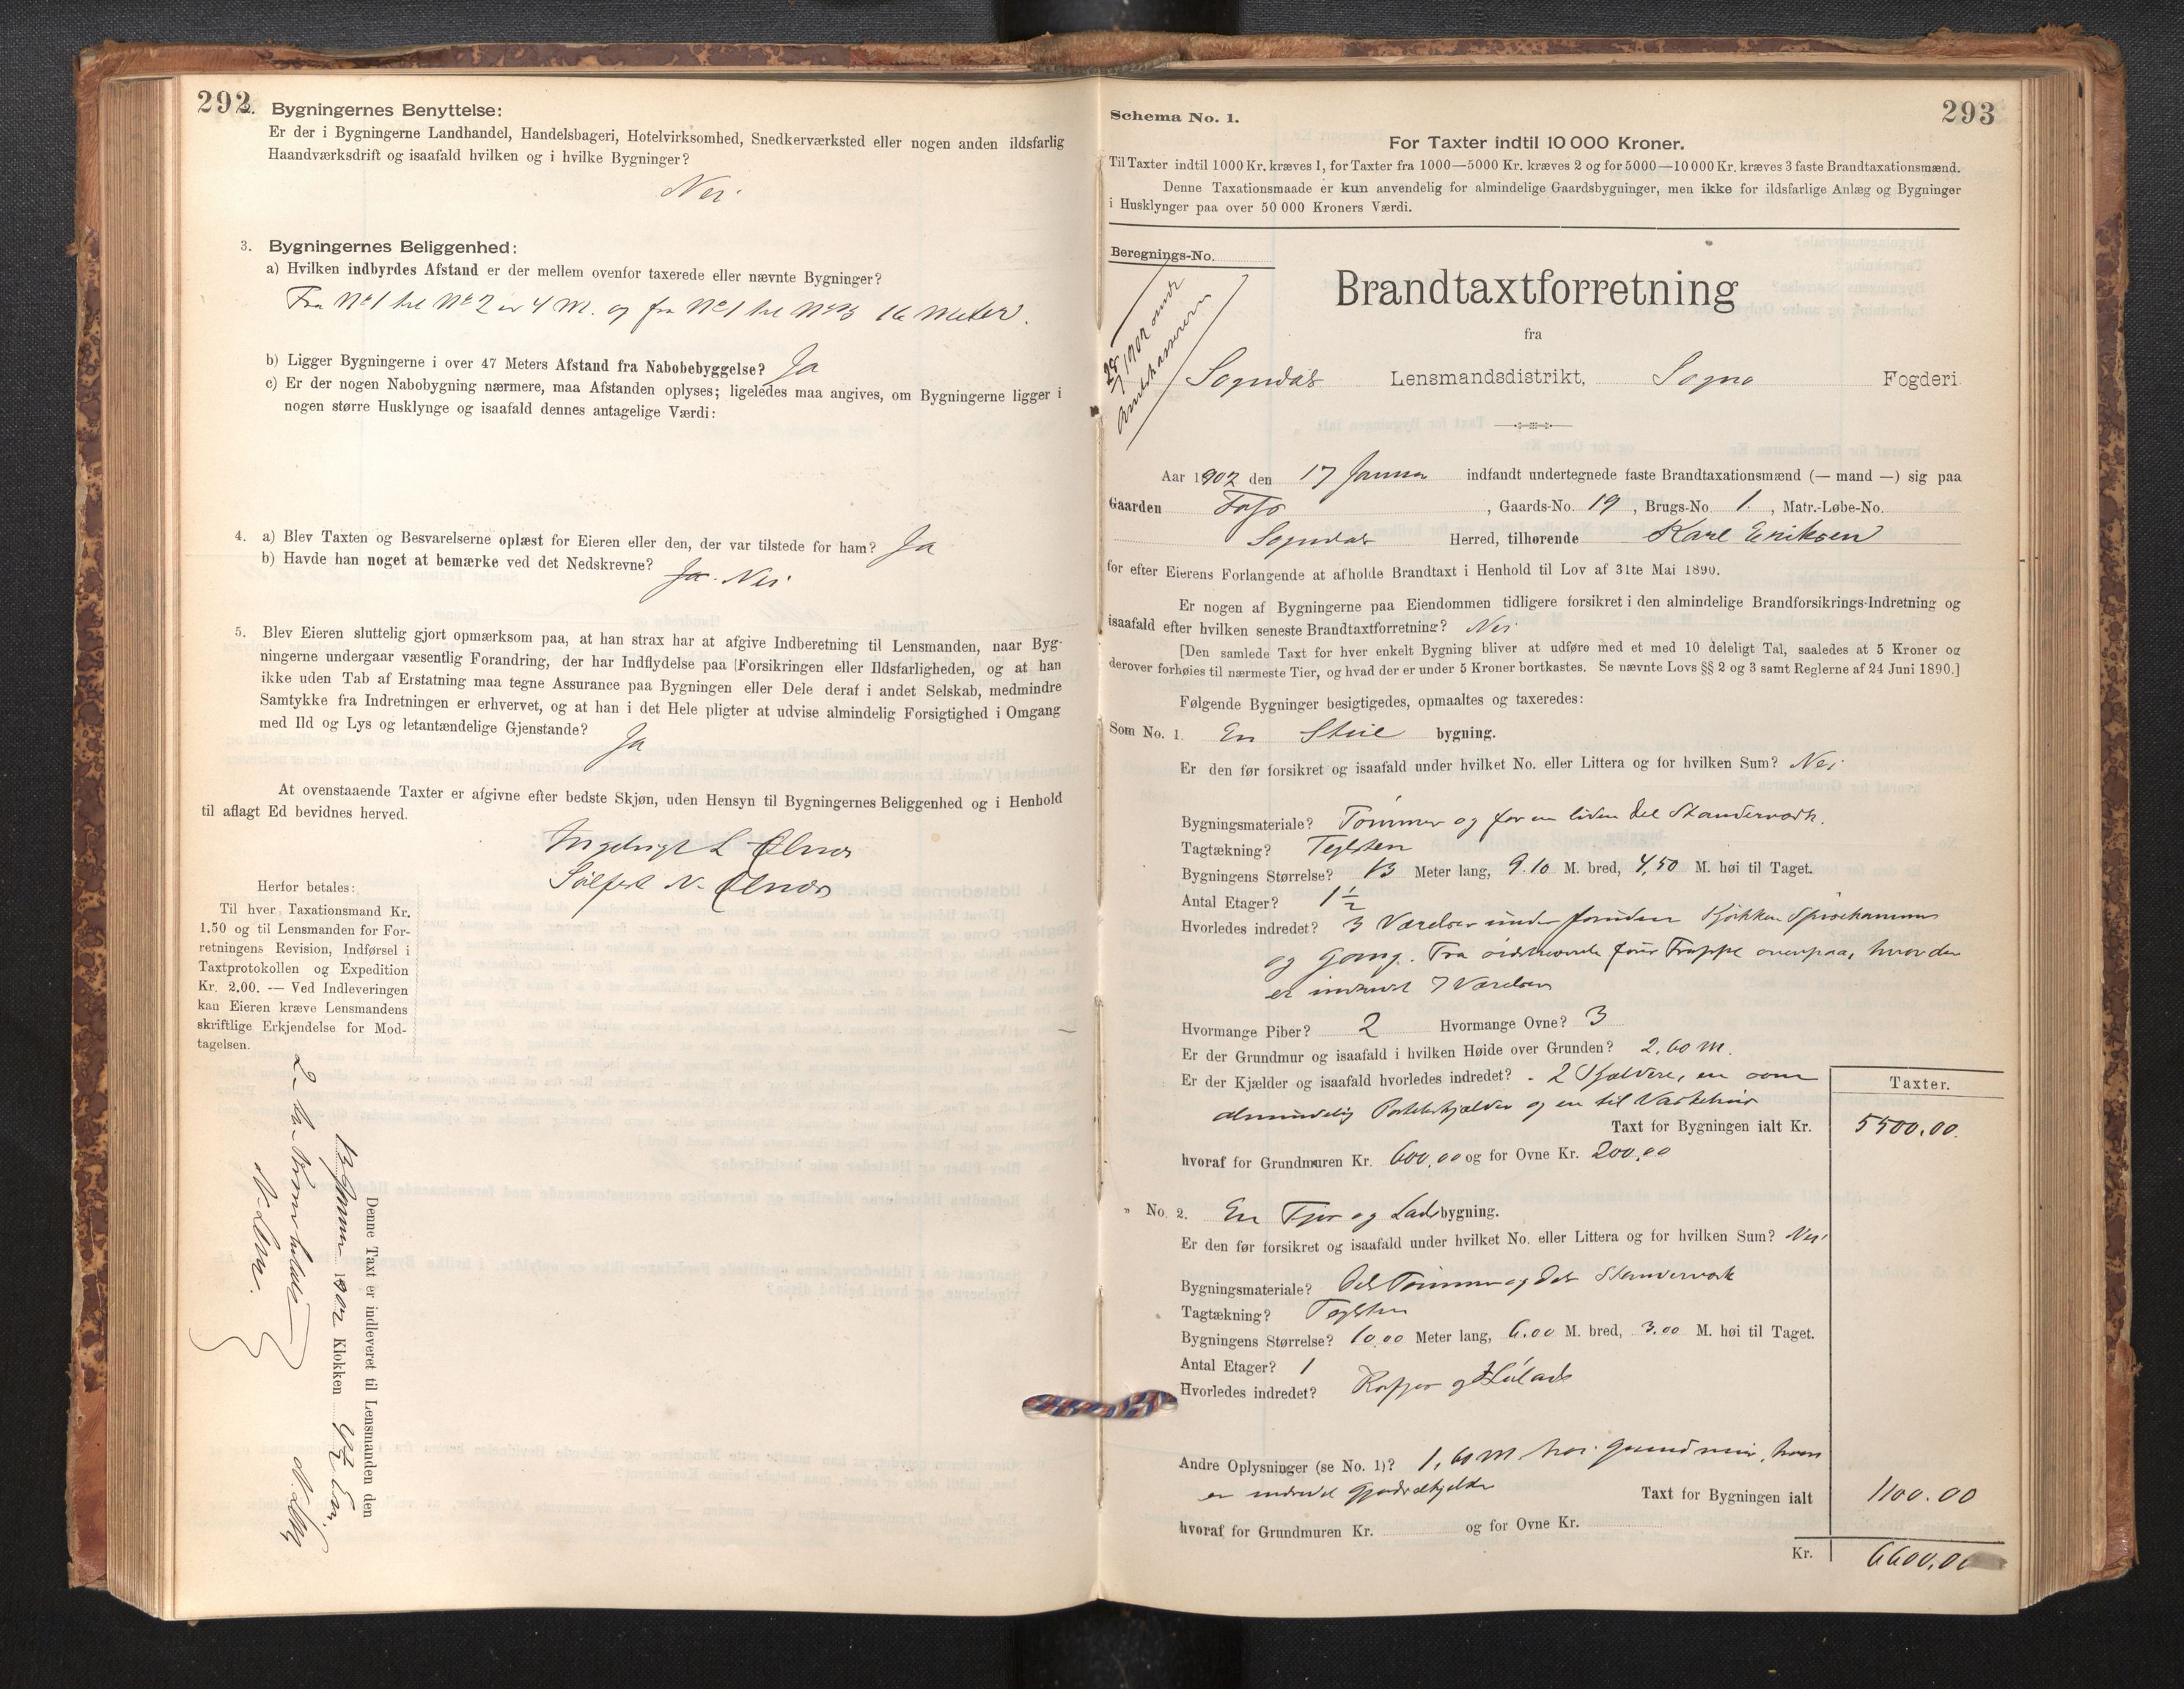 292
2. Bygningernes Benyttelse:
Er der i Bygningerne Landhandel, Handelsbageri, Hotelvirksomhed, Snedkerværksted eller nogen anden ildsfarlig
Haandværksdrift og isaafald hvilken og i hvilke Bygninger?
Nei
3. Bygningernes Beliggenhed:
a) Hvilken indbyrdes Afstand er der mellem ovenfor taxerede eller nævnte Bygninger?
Fra No 1 til No 2 er 4 M. og fra No 1 til No 3 16 Meter.
b) Ligger Bygningerne i over 47 Meters Afstand fra Nabobebyggelse? Ja
c) Er der nogen Nabobygning nærmere, maa Afstanden oplyses; ligeledes maa angives, om Bygningerne ligger i
nogen større Husklynge og isaafald dennes antagelige Værdi:
4. a) Blev Taxten og Besvarelserne oplæst for Eieren eller den, der var tilstede for ham? Ja
b) Havde han noget at bemærke ved det Nedskrevne? Ja. Nei
5. Blev Eieren sluttelig gjort opmærksom paa, at han strax har at afgive Indberetning til Lensmanden, naar Byg-
ningerne undergaar væsentlig Forandring, der har Indflydelse paa Forsikringen eller Ildsfarligheden, og at han
ikke uden Tab af Erstatning maa tegne Assurance paa Bygningen eller Dele deraf i andet Selskab, medmindre
Samtykke fra Indretningen er erhvervet, og at han i det Hele pligter at udvise almindelig Forsigtighed i Omgang
med Ild og Lys og letantændelige Gjenstande? Ja
At ovenstaaende Taxter er afgivne efter bedste Skjøn, uden Hensyn til Bygningernes Beliggenhed og i Henhold
til aflagt Ed bevidnes herved.
Ingebrigt L Ølnes
N. Ølnes
Herfor betales:
Til hver Taxationsmand Kr.
1.50 og til Lensmanden for For-
retningens Revision, Indførsel i
Taxtprotokollen og Expedition
Kr. 2.00. — Ved Indleveringen
kan Eieren kræve Lensmandens
skriftlige Erkjendelse for Mod-
tagelsen.
Denne Taxt er indleveret til Lensmanden den
1902 Klokken
293
Schema No. 1.
For Taxter indtil 10 000 Kroner.
Til Taxter indtil 1000 Kr. kræves 1, for Taxter fra 1000—5000 Kr. kræves 2 og for 5000—10 000 Kr. kræves 3 faste Brandtaxationsmænd.
Denne Taxationsmaade er kun anvendelig for almindelige Gaardsbygninger, men ikke for ildsfarlige Anlæg og Bygninger
i Husklynger paa over 50 000 Kroners Værdi.
Beregnings-No.
1902
Brandtaxtforretning
fra
Sogndal Lensmandsdistrikt, Sogns Fogderi
Aar 1902 den 17 Januar indfandt undertegnede faste Brandtaxationsmænd (— mand —) sig paa
Gaarden , Gaards-No. 19, Brugs-No. 1., Matr.-Løbe-No.
Sogndal Herred, tilhørende Karl Eriksen
for efter Eierens Forlangende at afholde Brandtaxt i Henhold til Lov af 31te Mai 1890.
Er nogen af Bygningerne paa Eiendommen tidligere forsikret i den almindelige Brandforsikrings-Indretning og
isaafald efter hvilken seneste Brandtaxtforretning? Nei
[Den samlede Taxt for hver enkelt Bygning bliver at udføre med et med 10 deleligt Tal, saaledes at 5 Kroner og
derover forhøies til nærmeste Tier, og hvad der er under 5 Kroner bortkastes. Se nævnte Lovs §§ 2 og 3 samt Reglerne af 24 Juni 1890.]
Følgende Bygninger besigtigedes, opmaaltes og taxeredes:
Som No. 1. En Stue bygning.
Er den før forsikret og isaafald under hvilket No. eller Littera og for hvilken Sum? Nei
Bygningsmateriale? Tømmer og for en liden Del Standerværk.
Tagtækning? Teglsten
Bygningens Størrelse? 13 Meter lang, 9.10 M. bred, 4,50 M. høi til Taget.
Antal Etager? 1 1/2
Hvorledes indredet? 3 Værelser under foruden Kjøkken Spisekammer
og Gang. Fra sidstnevnte fører Trappe ovenpaa, hvor der
er indredet 7 Værelser
Hvormange Piber? 2 Hvormange Ovne? 3
Er der Grundmur og isaafald i hvilken Høide over Grunden? 2,60 M.
Er der Kjælder og isaafald hvorledes indredet? 2 Kjeldere, en som
almindelig Potetkjælder og en til Vaskehus
Taxter.
Taxt for Bygningen ialt Kr. 5500,00.
hvoraf for Grundmuren Kr. 600,00 og for Ovne Kr. 200,00
" No. 2. En Fjøs og Lade bygning.
Er den før forsikret og isaafald under hvilket No. eller Littera og for hvilken Sum? Nei
Bygningsmateriale? Dels Tømmer og Dels Standerværk
Tagtækning? Teglsten
Bygningens Størrelse? 10,00 Meter lang, 6.00 M. bred, 3.00 M. høi til Taget.
Antal Etager? 1
Hvorledes indredet? Kofjøs og Hølade
Andre Oplysninger (se No. 1)? 1,60 M. høi Grundmur, hvori
er indredet Gjødselkjelder
Taxt for Bygningen ialt 1100.00
hvoraf for Grundmuren Kr. og for Ovne Kr.
Kr. 6600,00